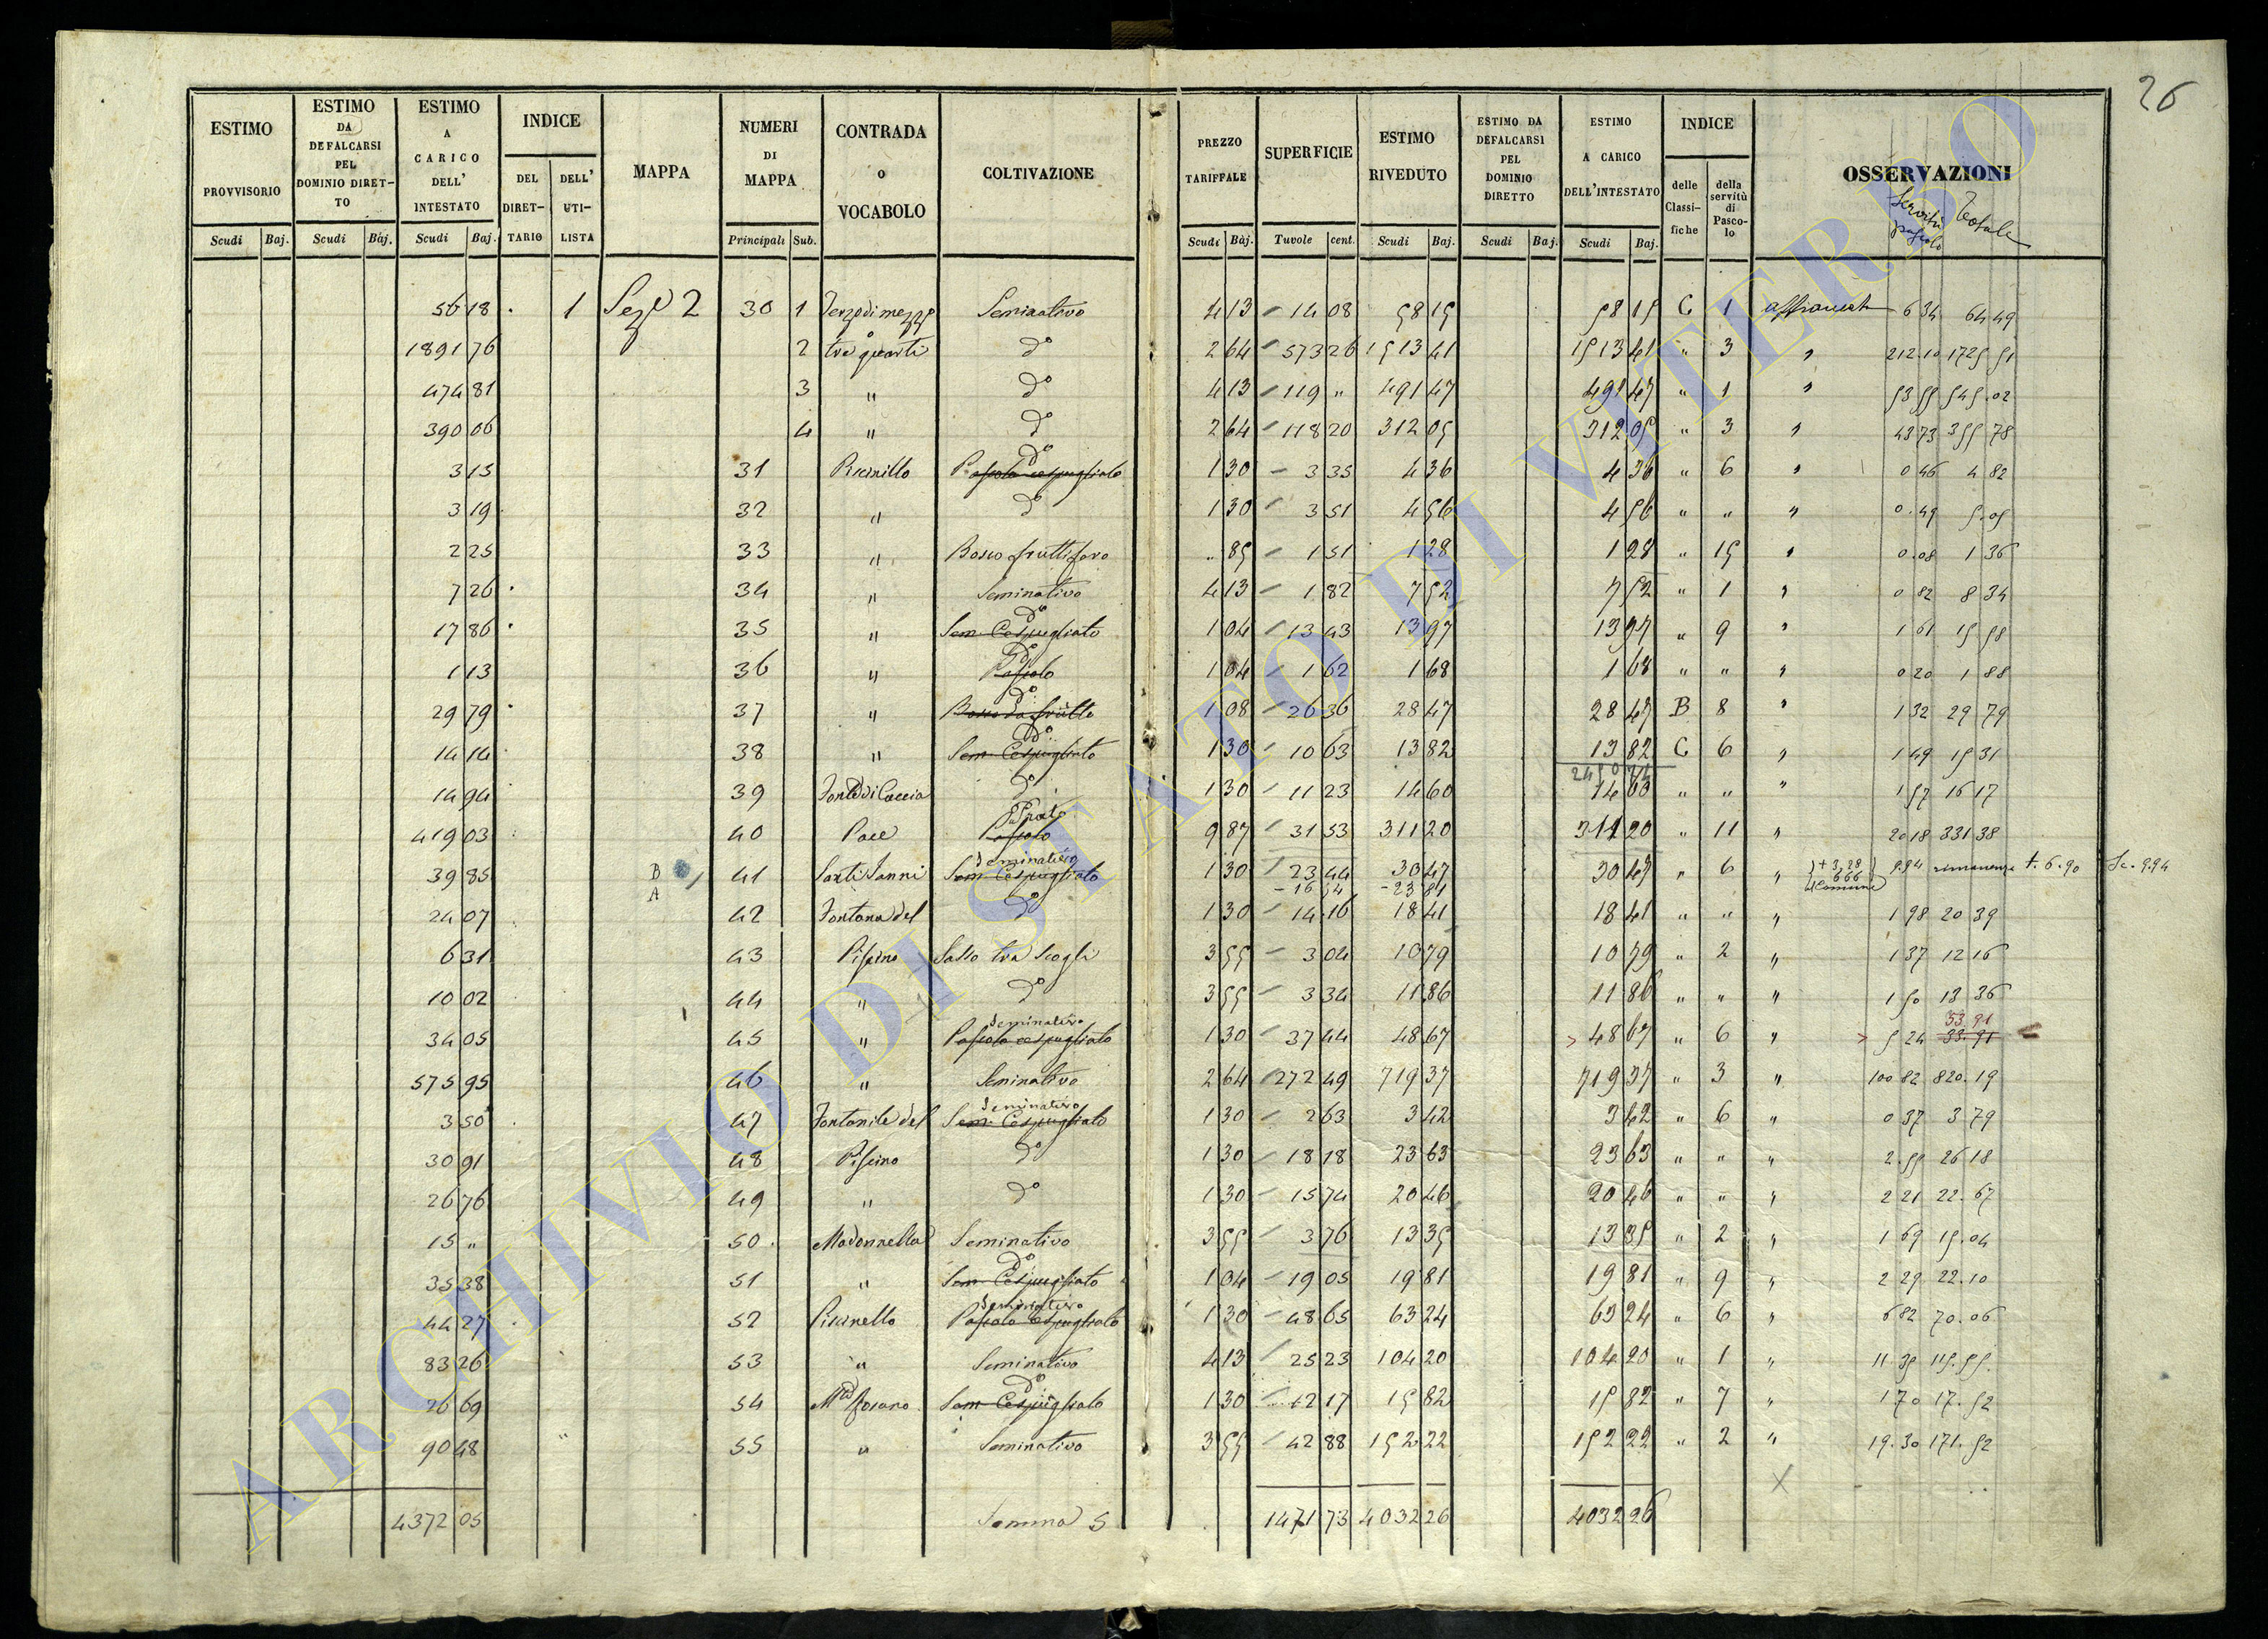 26
ESTIMO PROVVISORIO Scudi Baj.
ESTIMO DA DEFALCARSI PEL DOMINIO DIRETTO Scudi Baj.
ESTIMO A CARICO DELL' INTESTATO Scudi Baj.
INDICE DEL DIRETTARIO DELL' UTILISTA
MAPPA
NUMERI DI MAPPA Principali Sub.
CONTRADA o VOCABOLO
COLTIVAZIONE
PREZZO TARIFFALE Scudi Baj.
SUPERFICIE Tavole cent.
ESTIMO RIVEDUTO Scudi Baj.
ESTIMO DA DEFALCARSI PEL DOMINIO DIRETTO Scudi Baj.
ESTIMO A CARICO DELL'INTESTATO Scudi Baj.
INDICE delle Classifiche della servitù di Pascolo
OSSERVAZIONI
Servitù pascolo Totale
56 18 1 Sez.e 2 30 1 Terzo di mezzo o Seminativo 4 13 14 08 58 15 58 15 C 1 affrancata 6 34 64 49
1891 76 2 tre quarti do 2 64 573 26 1513 41 1513 41 " 3 " 212.10 1725 51
474 81 3 " do 4 13 119 " 491 47 491 47 " 1 " 53 55 545.02
390 06 4 " do 2 64 118 20 312 05 312 05 " 3 " 43 73 355 78
3 15 31 Picinillo do Pascolo cespugliato 1 30 3 35 4 36 4 36 " 6 " 0 46 4 82
3 19 32 " do 1 30 3 51 4 56 4 56 " " " 0.49 5.05
2 25 33 " Bosco fruttifero " 85 1 51 1 28 1 28 " 15 " 0.08 1 36
7 26 34 " Seminativo 4 13 1 82 7 52 7 52 " 1 " 0 82 8 34
17 86 35 " do Sem. Cespugliato 1 04 13 43 13 97 13 97 " 9 " 1 61 15 58
1 13 36 " do Pascolo 1 04 1 62 1 68 1 68 " " " 0 20 1 88
29 79 37 " do Bosco da frutto 1 08 26 36 28 47 28 47 B 8 " 1 32 29 79
14 14 38 " do Sem. Cespugliato 1 30 10 63 13 82 13 82 C 6 " 1 49 15 31
14 94 39 Fonte di Caccia do 1 30 11 23 14 60 14 60 " " " 1 57 16 17
419 03 40 Pace Prato Pascolo 9 87 31 53 311 20 311 20 " 11 " 20 18 331 38
39 85 B A 41 Santi Janni Seminativo Sem. Cespugliato 1 30 23 44 30 47 30 47 " 6 " + 3,28 666 Comune 9.94 rimanenza t. 6.90 Sc. 9.94
- 16 54 - 23 81
24 07 42 Fontana del do 1 30 14 16 18 41 18 41 " " " 1 98 20 39
6 31 43 Piscino Sasso tra scogli 3 55 3 04 10 79 10 79 " 2 " 1 37 12 16
10 02 44 " do 3 55 3 34 11 86 11 86 " " " 1 50 13 36
34 05 45 " Seminativo Pascolo cespugliato 1 30 37 44 48 67 48 67 " 6 " 5 24 53 91 33.91
575 95 46 " Seminativo 2 64 272 49 719 37 719 37 " 3 " 100 82 820.19
3 50 47 Fontanile del Seminativo Sem. Cespugliato 1 30 2 63 3 42 3 42 " 6 " 0 37 3 79
30 91 48 Piscino do 1 30 18 18 23 63 23 63 " " " 2.55 26 18
26 76 49 " do 1 30 15 74 20 46 20 46 " " " 2 21 22.67
15 " 50 Madonnella Seminativo 3 55 3 76 13 35 13 35 " 2 " 1 69 15.04
35 38 51 " do Sem. Cespugliato 1 04 19 05 19 81 19 81 " 9 " 2 29 22.10
44 27 52 Picinello Seminativo Pascolo Cespugliato 1 30 48 65 63 24 63 24 " 6 " 6 82 70.06
83 26 53 " Seminativo 4 13 25 23 104 20 104 20 " 1 " 11 35 115.55
26 69 54 do Sem. Cespugliato 1 30 12 17 15 82 15 82 " 7 " 1 70 17.52
90 48 55 " Seminativo 3 55 42 88 152 22 152 22 " 2 " 19.30 171.52
4372 05 Somma S 1471 73 4032 26 4032 26
ARCHIVIO DI STATO DI VITERBO